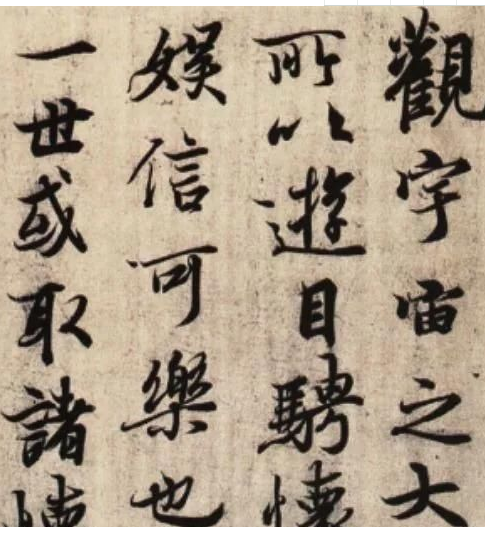 觀宇宙之大
所以遊目騁懷
娛信可樂也
一世或取諸